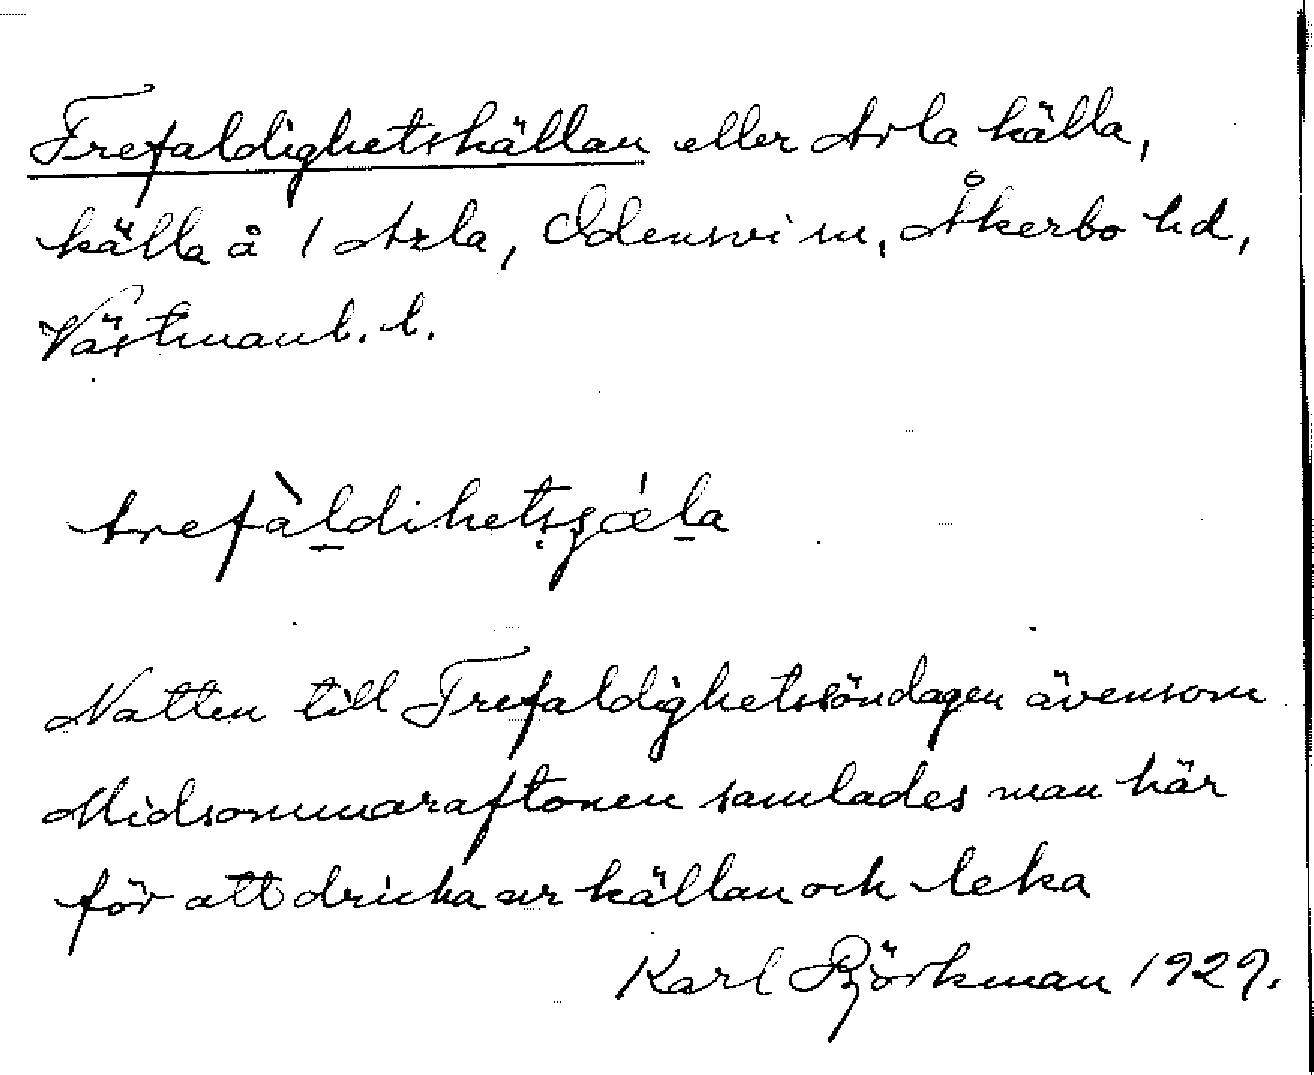 Trefaldighetskällan eller Arla källa,
källa å 1 Arla, Odensvi sn, Åkerbo hd,
Västmanl. l.
trefàldihetsçæ̍la
Natten till Trefaldighetssöndagen ävensom
Midsommaraftonen samlades man här
för att dricka ur källan och leka
Karl Björkman 1929.